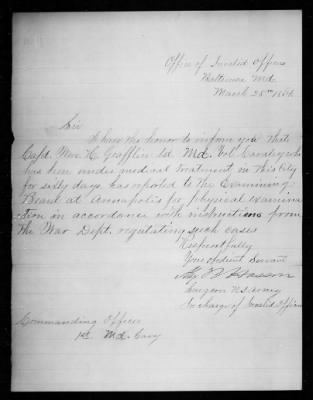 Office of Invalid Officers
Baltimore Md.
March 28th 1864
Sir
I have the honor to inform you that
Capt. Wm. H. Grafflin 1st Md. Vol. Cavalry who
has been under medical treatment in this City
for sixty days has reported to the Examining
Board at Annapolis for physical examina
tion in accordance with instructions from
the War Dept. regulating such cases
Respectfully
Your obedient Servant
Hasson
Surgeon U.S. Army
In charge of Invalid Officers
Commanding Officer
1st Md. Cavy